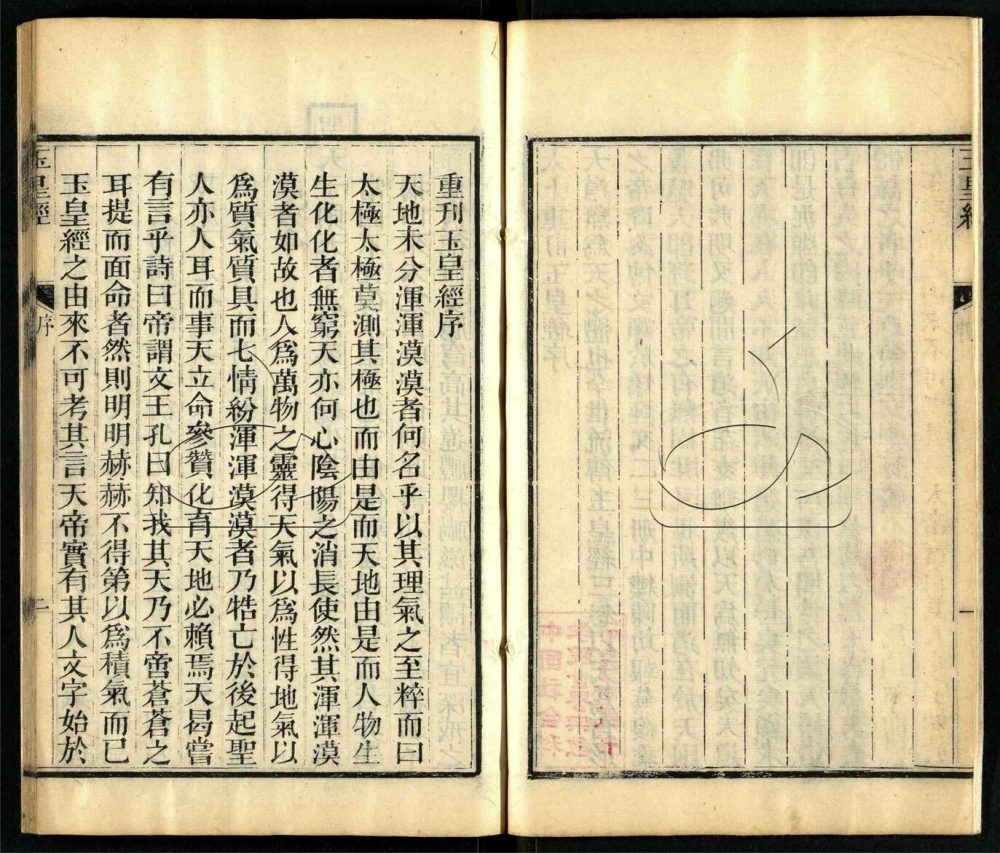 重刊玉皇經序
天地未分渾渾漠漠者何名乎以其理氣之至粹而曰
太極太極莫測其極也而由是而天地由是而人物生
生化化者無窮天亦何心陰陽之消長使然其渾渾漠
漠者如故也人爲萬物之靈得天氣以爲性得地氣以
爲質氣質具而七情紛渾渾漠漠者乃牿亡於後起聖
人亦人耳而事天立命參贊化育天地必賴焉天曷嘗
有言乎詩曰帝謂文王孔曰知我其天乃不啻蒼蒼之
耳提而面命者然則明明赫赫不得第以爲積氣而已
玉皇經之由來不可考其言天帝實有其人文字始於
玉皇經
序
二
玉皇經
一